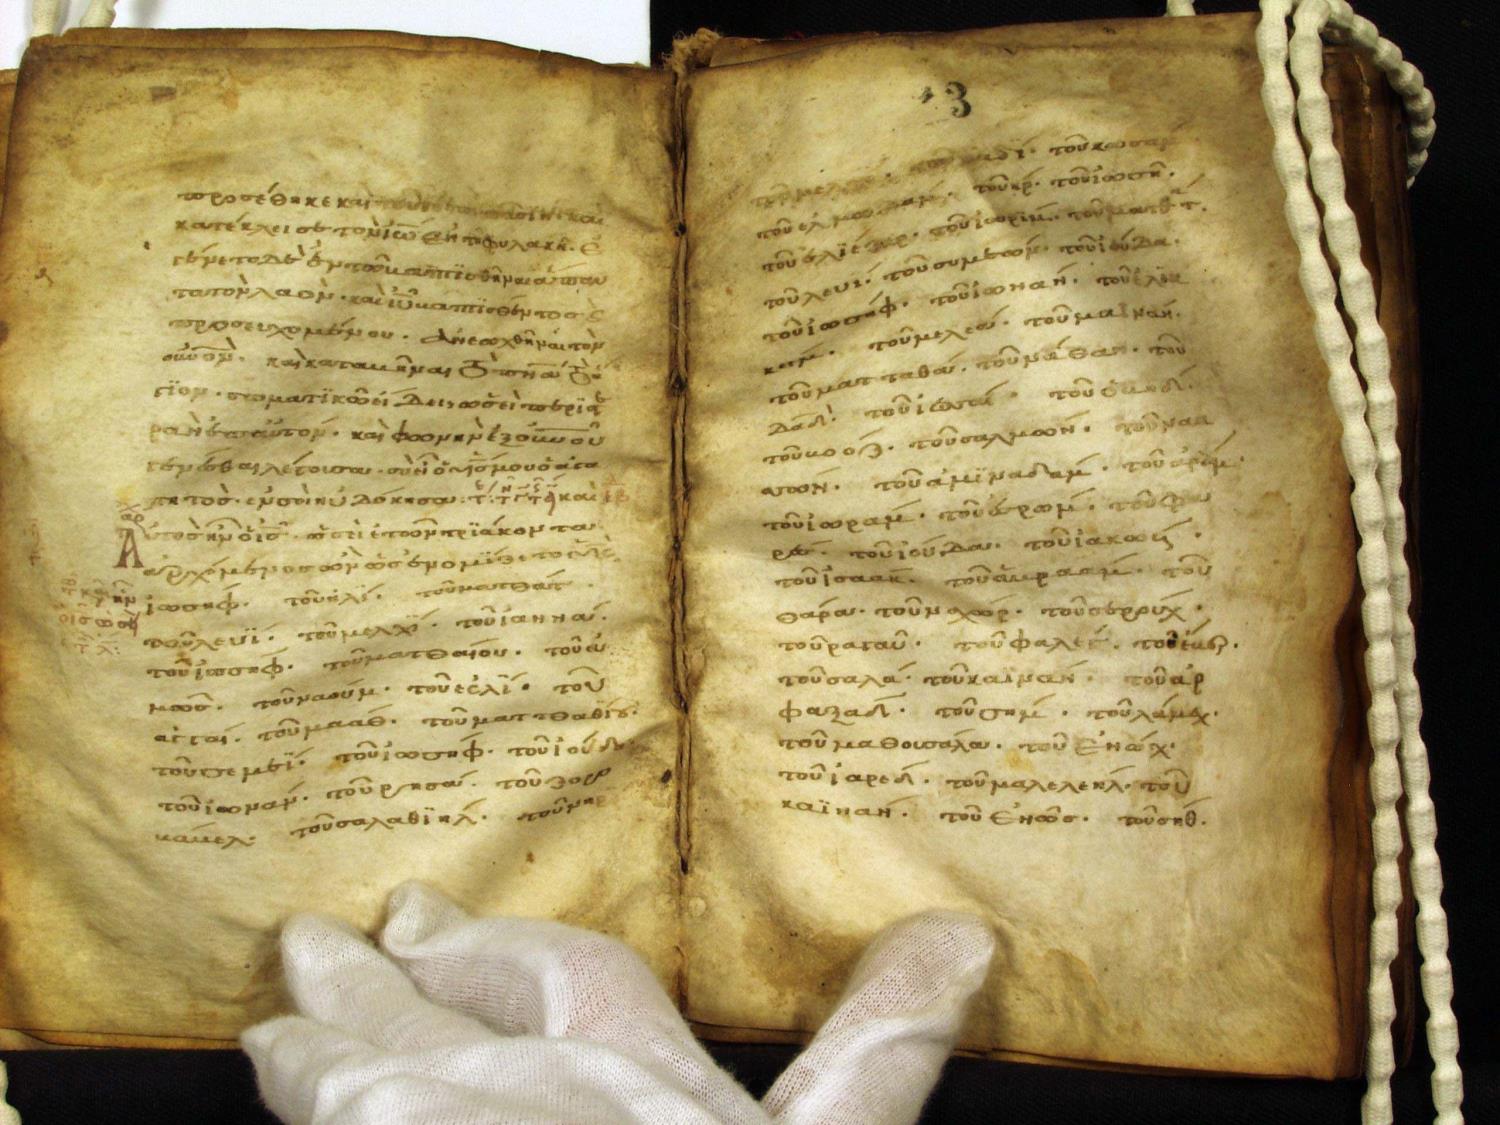 προσέθηκε καὶ τοῦτο ἐπὶ πᾶσιν· καὶ
κατέκλεισε τὸν ἰω ἐν τῇ φυλακῇ. Ἐ
γένετο δὲ ἐν τῷ βαπτισθῆναι ἅπαν
τα τὸν λαὸν· καὶ ιυ βαπτισθέντος
προσευχομένου. ἀνεωχθῆναι τὸν
ουνον. καὶ καταβῆναι τὸ πνα τὸ ἅ
γιον. σωματικῶ εἴδει ὡσεὶ περιστε
ρὰν ἐπ αὐτὸν. καὶ φωνὴν ἐξ ουνου
γενέσθαι λέγουσαν. σὺ εἶ ὁ υσ μου ὁ ἀγα
πητὸς. ἐν σοὶ ηὐδόκησα. καὶ
Αὐτὸς ἦν ὁ ισ. ὡσεὶ ἐτῶν τριάκοντα
ἀρχόμενος ὢν ὡς ἐνομίζετο
ἰωσηφ. τοῦ ἠλί. τοῦ ματθάτ.
τοῦ λευΐ. τοῦ μελχΐ. τοῦ ἰαννά.
τοῦ ἰωσηφ. τοῦ ματθαίου. τοῦ ἀ
μῶς. τοῦ ναοὺμ. τοῦ ἐσλΐ. τοῦ
τοῦ μαάθ. τοῦ ματταθίου.
τοῦ σεμεΐ. τοῦ ἰωσηφ. τοῦ ἰούδα.
τοῦ ἰωνάν. τοῦ ρησά. τοῦ ζορο
βάβελ. τοῦ σαλαθιὴλ. τοῦ νηρι
13
τοῦ μελχι. τοῦ ἀδδΐ. τοῦ κωσὰμ
τοῦ ἐλμωδὰμ. τοῦ ἤρ. τοῦ ἰωσῆ.
τοῦ ἐλιέζερ. τοῦ ἰωρὶμ. τοῦ ματθάτ.
τοῦ λευί. τοῦ συμεὼν. τοῦ ἰούδα.
τοῦ ἰωσὴφ. τοῦ ἰωνὰν. τοῦ ἐλια
κεὶμ. τοῦ μελεᾶ. τοῦ μαϊνὰν.
τοῦ ματταθά. τοῦ νάθαν. τοῦ
δαδ. τοῦ ἰεσσαί. τοῦ ὠβὴδ.
τοῦ βοὸζ. τοῦ σαλμὼν. τοῦ ναα
σσὼν. τοῦ ἀμιναδάμ. τοῦ ἀρὰμ.
τοῦ ἰωρὰμ. τοῦ ἐσρὼμ. τοῦ φα
ρές. τοῦ ἰούδα. τοῦ ἰακὼβ.
τοῦ ἰσαάκ. τοῦ ἀβραάμ. τοῦ
θάρα. τοῦ ναχώρ. τοῦ σεροὺχ.
τοῦ ραγαῦ. τοῦ φαλέγ. τοῦ ἔβερ.
τοῦ σαλά. τοῦ καϊνάν. τοῦ ἀρ
φαξάδ. τοῦ σὴμ. τοῦ λάμεχ.
τοῦ μαθουσάλα. τοῦ Ἐνώχ.
τοῦ ἰαρέδ. τοῦ μαλελεὴλ. τοῦ
καϊνάν. τοῦ Ἐνὼς. τοῦ σὴθ.